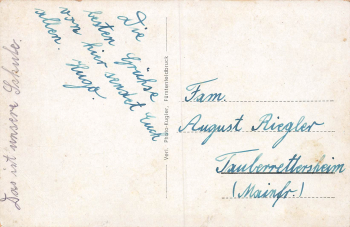 Die
besten Grühse
von hier sendet Euch
allen.
Hugo.
Das ist unsere Schule.
Verl. Photo-Kugler, Fürstenfeldbruck
Fam.
August Riegler
Tauberrettersheim
(Mainfr.)